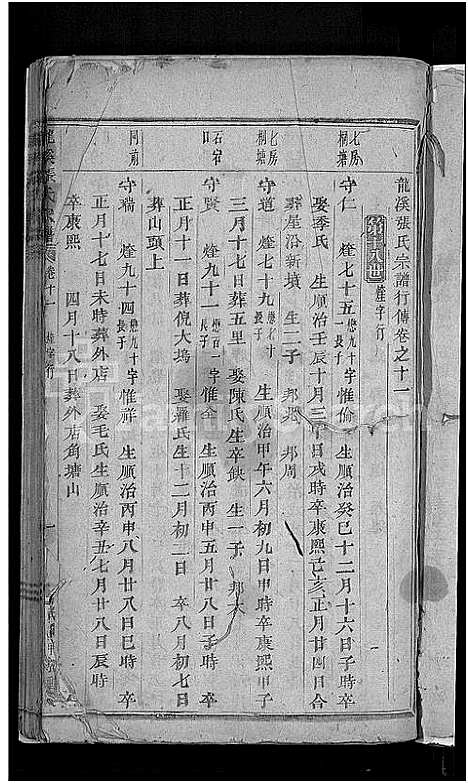 龍溪張氏宗譜行傳卷之十一
第十八世 煃字行
七房
桐塘
守仁 煃七十五 懋九十六長子 字惟儉 生順治癸巳十二月十六日子時 卒
娶季氏 生順治壬辰十月三十日戌時卒康熙己亥正月廿四日合
葬屋沿新墳 生二子 邦兆 邦周
七房
桐塘
守道 煃七十九 懋百十長子 生順治甲午六月初九日申時卒康熙甲子
三月十七日葬五里 娶陳氏生卒缺 生一子 邦本
石宕
口
守賢 煃九十二 懋百一字長子 惟金 生順治丙申五月廿八日子時 卒
正月十一日葬倪大塢 娶羅氏生十二月初二日 卒八月初七日
葬山頭上
同前
守瑞 煃九十四 懋九十字長子 惟祥 生順治丙申八月廿八日巳時 卒
正月十七日未時葬外店 娶毛氏生順治辛丑七月廿八日辰時
卒康熙 四月十八日葬外店角塘山
龍溪張氏宗譜 卷十一 煃字行 一